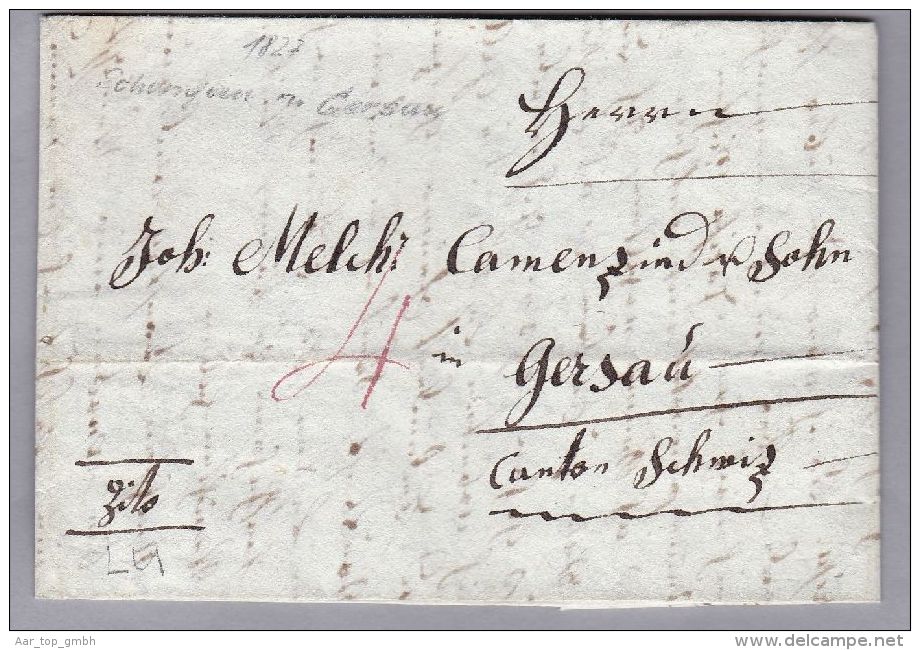 1827
n Gersau
Herrn
Joh: Melch: Camenzind & Sohn
4
in Gersau
Canton Schwiz
Zito
Aar_top_gmbh
www.delcampe.net